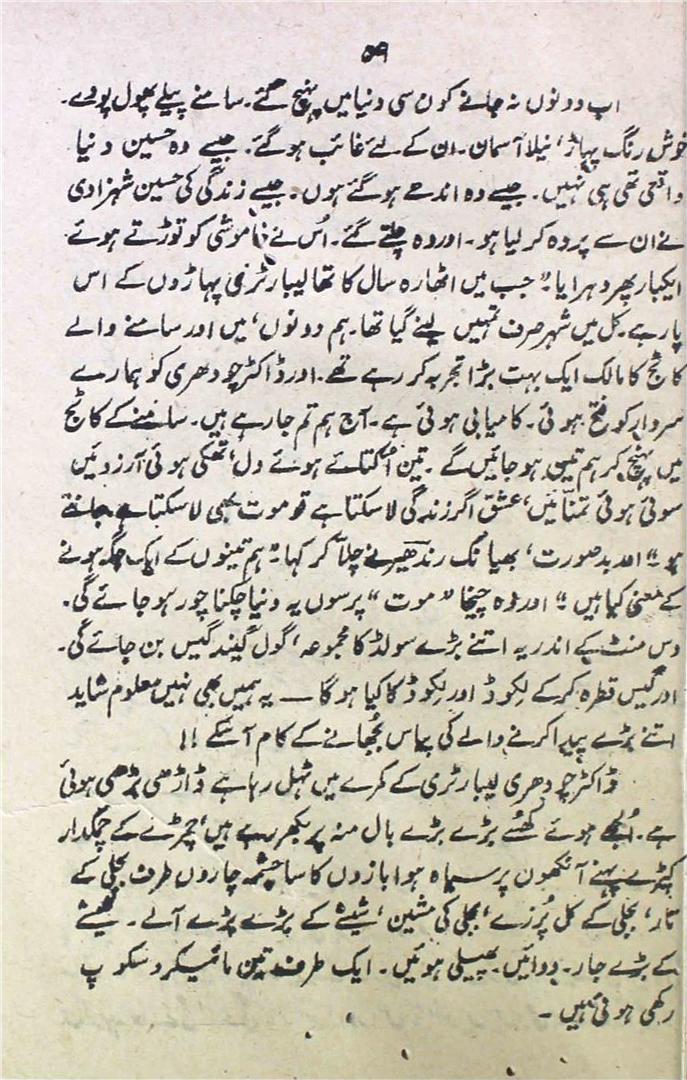 ۵۹
اب دونوں نہ جانے کون سی دنیا میں پہنچ گئے۔ سامنے پیلے پھول پودے۔
خوش رنگ پہاڑ، نیلا آسمان۔ ان کے لئے غائب ہو گئے۔ جیسے وہ حسین دنیا
واقعی تھی ہی نہیں۔ جیسے وہ اندھے ہو گئے ہوں۔ جیسے زندگی کی حسین شہزادی
نے ان سے پردہ کر لیا ہو۔ اور وہ چلتے گئے۔ اُس نے خاموشی کو توڑتے ہوئے
ایکبار پھر دہرایا۔" جب میں اٹھارہ سال کا تھا لیبارٹری پہاڑوں کے اس
پار ہے۔ کل میں شہر صرف تمہیں لینے گیا تھا۔ ہم دونوں، میں اور سامنے والے
کاٹج کا مالک ایک بہت بڑا تجربہ کر رہے تھے۔ اور ڈاکٹر چودھری کو ہمارے
سردار کو فتح ہوئی۔ کامیابی ہوئی ہے۔ آج ہم تم جا رہے ہیں۔ سامنے کے کاٹج
میں پہنچ کر ہم تین ہو جائیں گے۔ تین اُکتائے ہوئے دل، تھکی ہوئی آرزوئیں
سوئی ہوئی تمنائیں، عشق اگر زندگی لا سکتا ہے تو موت بھی لا سکتا ہے جانتے
ہو " اور بدصورت، بھیانک رندھیر نے چلّا کر کہا۔" ہم تینوں کے ایک جگہ ہونے
کے معنی کیا ہیں " اور وہ چیخا " موت " پرسوں یہ دنیا چکنا چور ہو جائے گی۔
دس منٹ کے اندر یہ اتنے بڑے سولڈ کا مجموعہ، گول گیند گیس بن جائے گی۔
اور گیس قطرہ کر کے لکوڈ اور لکوڈ کا کیا ہو گا ــ یہ ہمیں بھی نہیں معلوم شاید
اتنے بڑے پیدا کرنے والے کی پیاس بُجھانے کے کام آ سکے !!
ڈاکٹر چودھری لیبارٹری کے کمرے میں ٹہل رہا ہے ڈاڑھی بڑھی ہوئی
ہے۔ اُلجھے ہوئے گھنے بڑے بڑے بال منہ پر بکھر رہے ہیں، چمڑے کے چمکدار
کپڑے پہنے آنکھوں پر سیاہ ہوابازوں کا سا چشمہ چاروں طرف بجلی کے
تار، بجلی کے کل پُرزے، بجلی کی مشین، شیشے کے بڑے بڑے آلے۔ شیشے
کے بڑے جار۔ دوائیں۔ پھیلی ہوئیں۔ ایک طرف تین مائیکروسکوپ
رکھی ہوئی ہیں۔